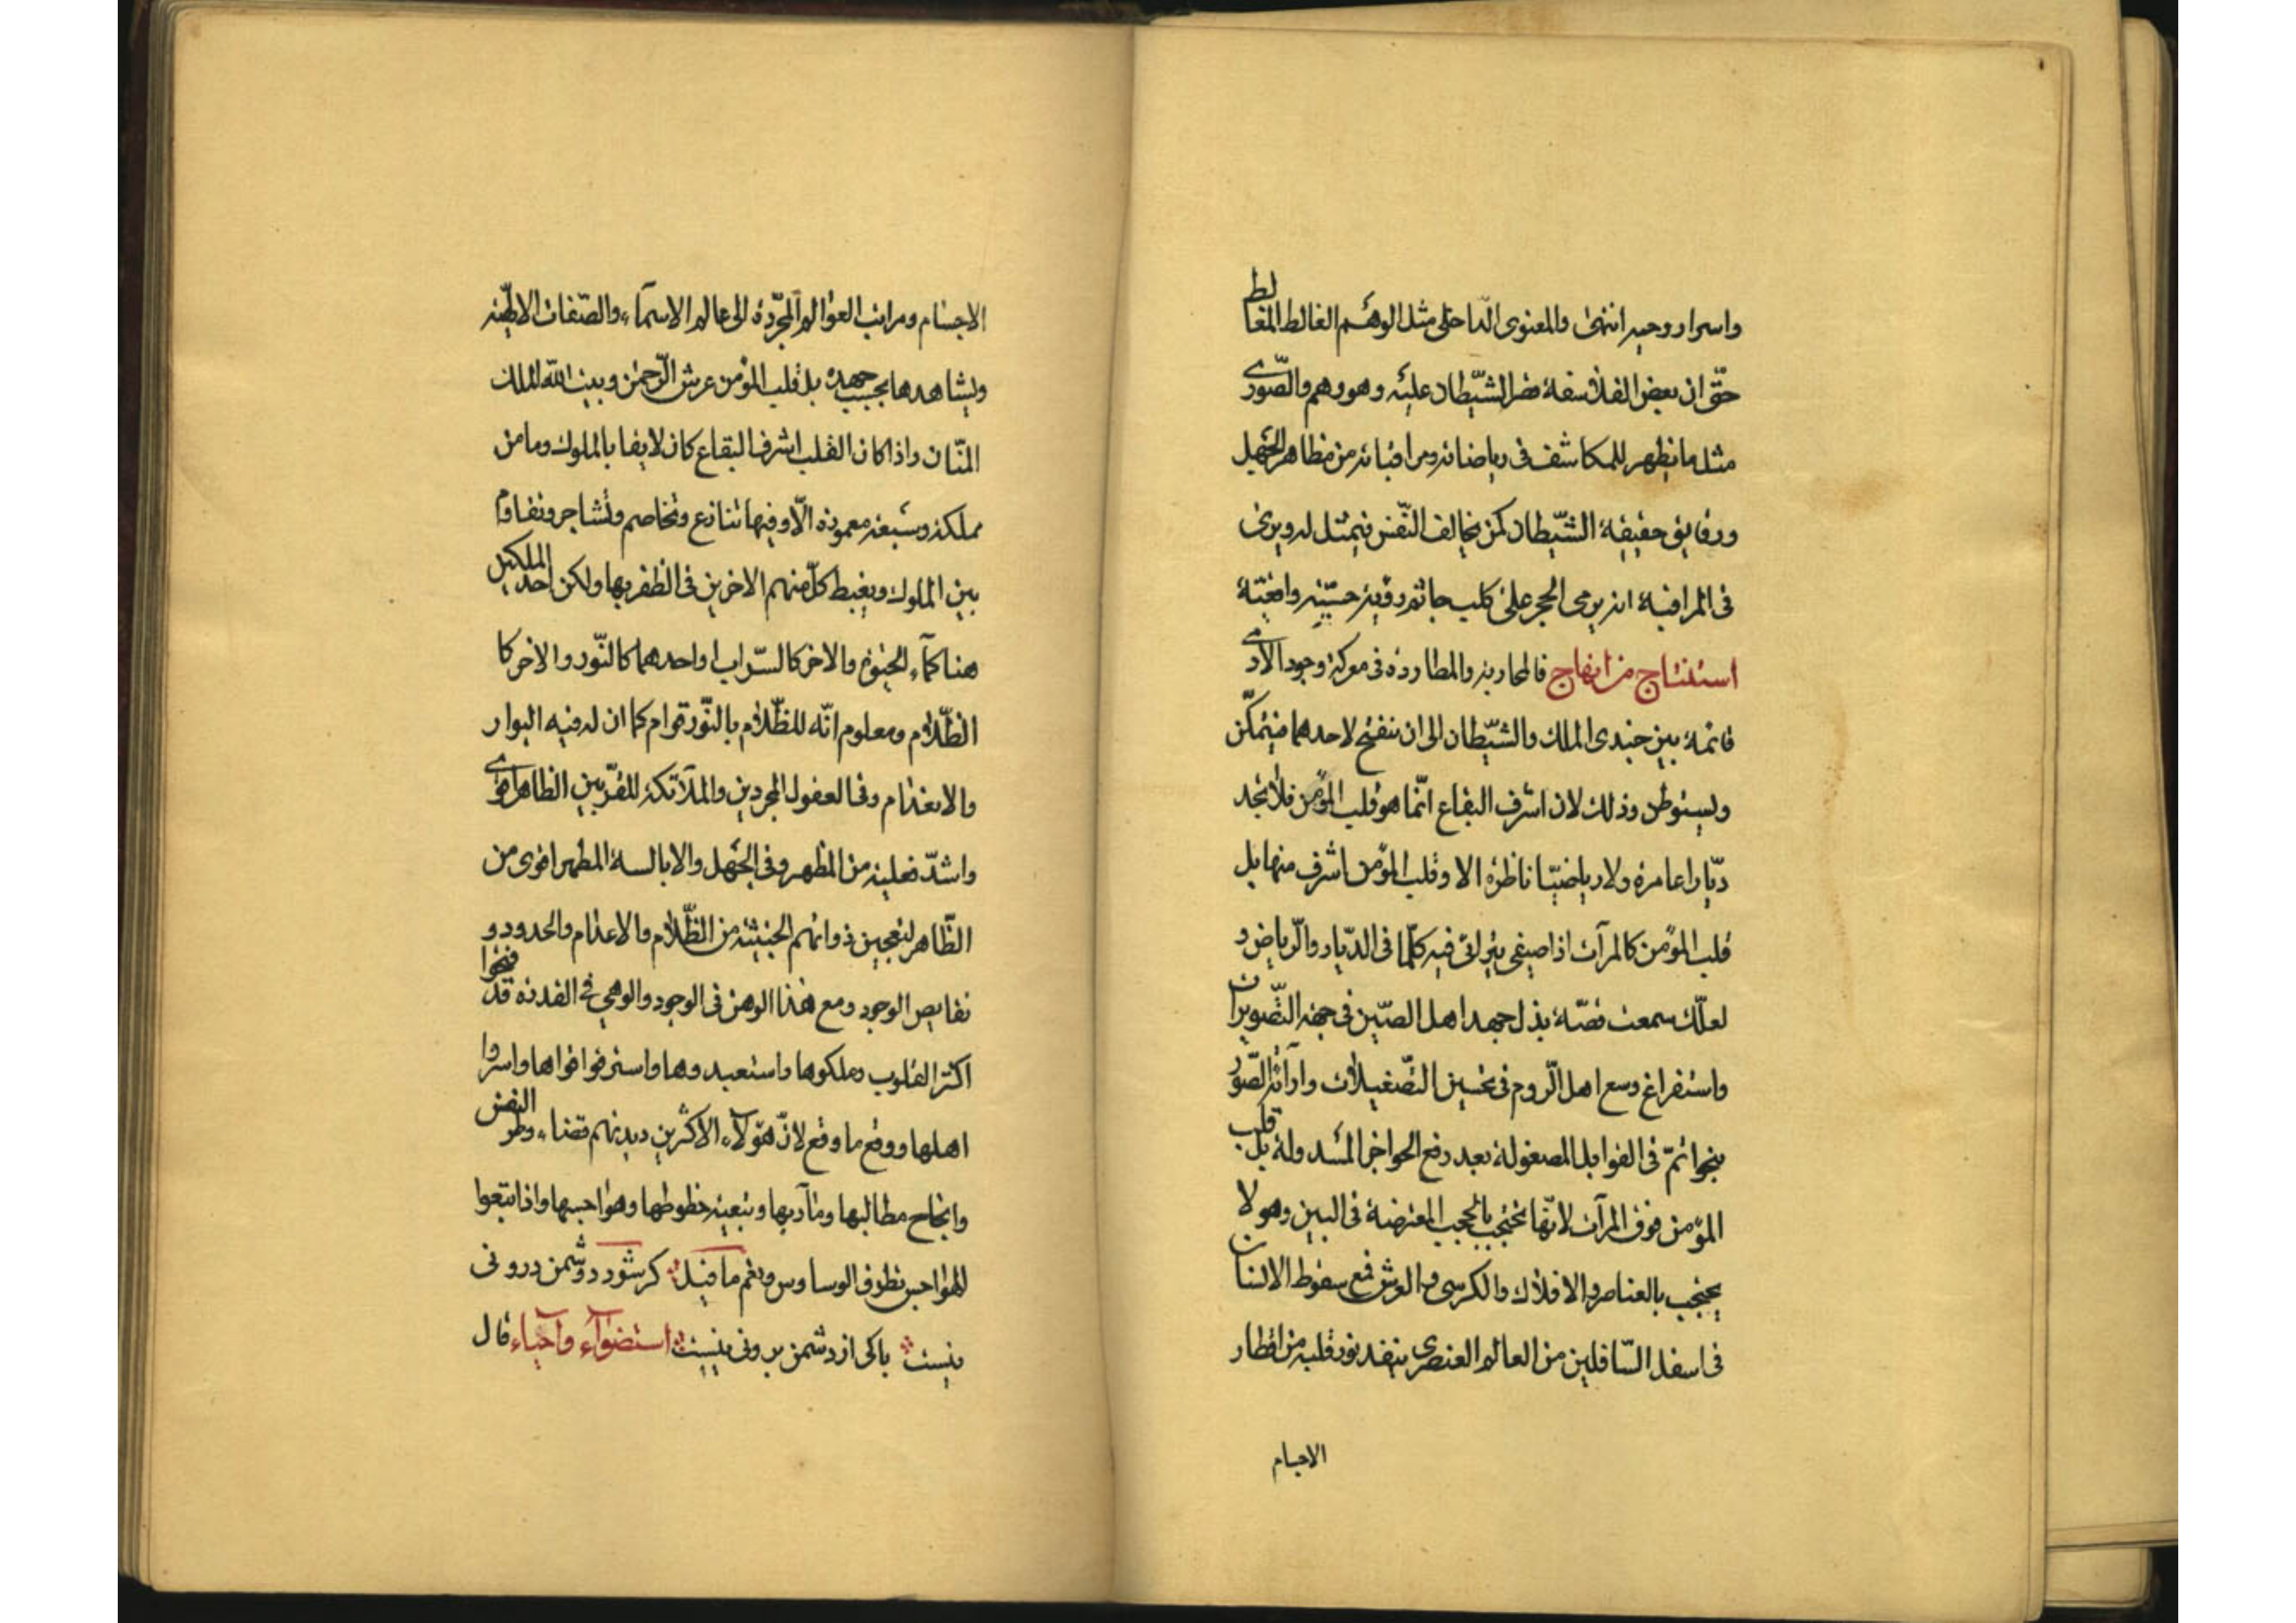 واسرار وحيه انتهى والمعنوى الداخلى مثل الوهم الغالط المغالط
حتّى ان بعض الفلاسفة فسر الشّيطان عليه وهو وهم والصّورى
مثل ما يظهر للمكاشف فى رياضاته ومراقباته من مظاهر الجهل
ورقايق حقيقة الشّيطان كمن يخالف النّفس فيمثل له ويرى
فى المراقبة انه يرمى الحجر على كلب جاثم رؤية حسّيّه واقعيّة
استنتاج من انفاج فالمحاربة والمطاردة فى معركة وجود الآدمى
قائمة بين جندى الملك والشّيطان الى ان ينفتح لاحدهما فيتمكّن
ويستوطن وذلك لان اشرف البقاع انّما هو قلب المؤمن فلا تجد
ديّارا عامرة ولا رياضيّا ناظرة الا وقلب المؤمن اشرف منها بل
قلب المؤمن كالمرآت اذا صيغى يترائى فيه كلّما فى الدّيار والرّياض و
لعلّك سمعت قصّة بذل جهد اهل الصّين فى جهة التّصويرات
واستفراغ وسع اهل الرّوم فى تحسين التّصقيلات وارآئة الصّور
بنحو اتمّ فى القوابل المصقولة بعد رفع الحواجز المسدولة بل قلب
المؤمن فوق المرآت لانّها تحتجب بالحجب المعترضة فى البين وهو لا
يحتجب بالعناصر والافلاك والكرسى والعرش فمع سقوط الانسان
فى اسفل السّافلين من العالم العنصرى ينفذ نور قلبه من اقطار
الاجسام
الاجسام ومراتب العوالم المجرّدة الى عالم الاسمآء والصّفات الالهيّة
ويشاهدها بحسب جهده بل قلب المؤمن عرش الرّحمن وبيت اللّه الملك
المنّان واذا كان القلب اشرف البقاع كان لايقا بالملوك وما من
مملكة وسيعة معمورة الّا وفيها تنازع وتخاصم وتشاجر وتقاوم
بين الملوك ويغبط كلّ منهم الاخرين فى الظفر بها ولكن احد الملكين
هنا كمآء الحيوة والاخر كالسّراب او احدهما كالنّور والاخر كا
الظّلام ومعلوم انّه للظّلام بالنّور قوام كما ان له فيه البوار
والانعدام وفى العقول المجردين والملآئكة المقرّبين الظاهر اقوى
واشدّ فعلية من المظهر وفى الجهل والابالسة المظهر اقوى من
الظّاهر لتعجين ذواتهم الخبيثة من الظّلام والاعدام والحدود و
نقايص الوجود ومع هذا الوهن فى الوجود والوهى فى القدرة قد فتحوا
اكثر القلوب وملكوها واستعبدوها واسترقوا قواها واسروا
اهلها ووقع ما وقع لانّ هؤلآء الاكثرين ديدنهم قضاء وطر النفس
وانجاح مطالبها ومآربها وتبعية حظوظها وهواجسها واذا تتبعوا
الهواجس تطرق الوساوس ونعم ما قيل كر شود دوشمن درونى
نيست باكى از دشمن برونى نيست استضوآء وآحياء قال